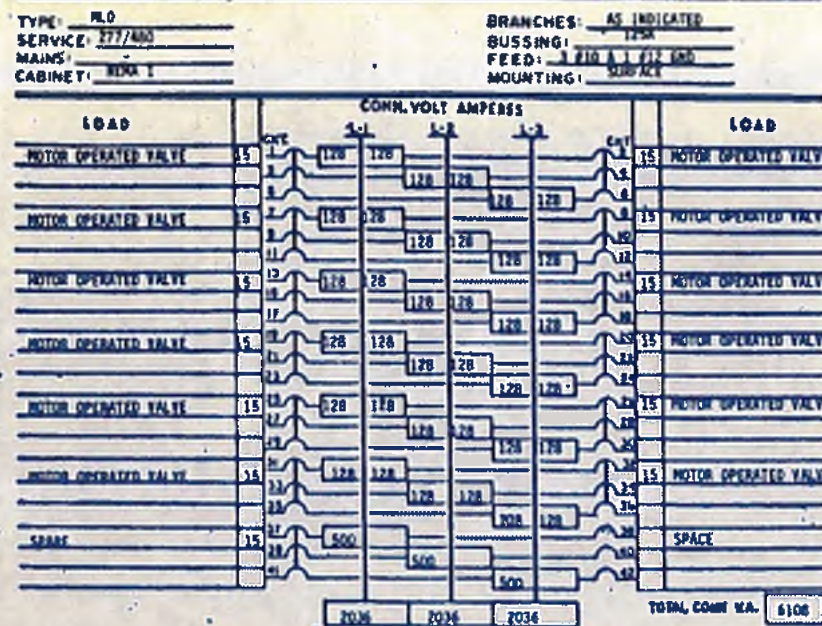 TYPE: MLO
BRANCHES: AS INDICATED
SERVICE: 277/480
BUSSING: 125A
MAINS: -
FEED: 3 #10 & 1 #12 GND
CABINET: NEMA 1
MOUNTING: SURFACE
CONN. VOLT AMPERES
LOAD CKT L-2 L-3 CKT LOAD
MOTOR OPERATED VALVE 15 1 128 128 15 MOTOR OPERATED VALV
128 128
128 128 6
MOTOR OPERATED VALVE 15 7 128 128 15 MOTOR OPERATED VALV
9 128 128 10
11 128 128 12
MOTOR OPERATED VALVE 15 13 128 128 15 MOTOR OPERATED VALV
128 128
17 128 128
MOTOR OPERATED VALVE 15 128 128 15 MOTOR OPERATED VALV
128 128
128 128 24
MOTOR OPERATED VALVE 15 128 128 15 MOTOR OPERATED VALV
128 128
128 128
MOTOR OPERATED VALVE 15 128 128 15 MOTOR OPERATED VALV
33 128 128
128
SPARE 15 37 500 SPACE
500 40
41 500 42
2036 2036 2036 TOTAL CONN V.A. 6108